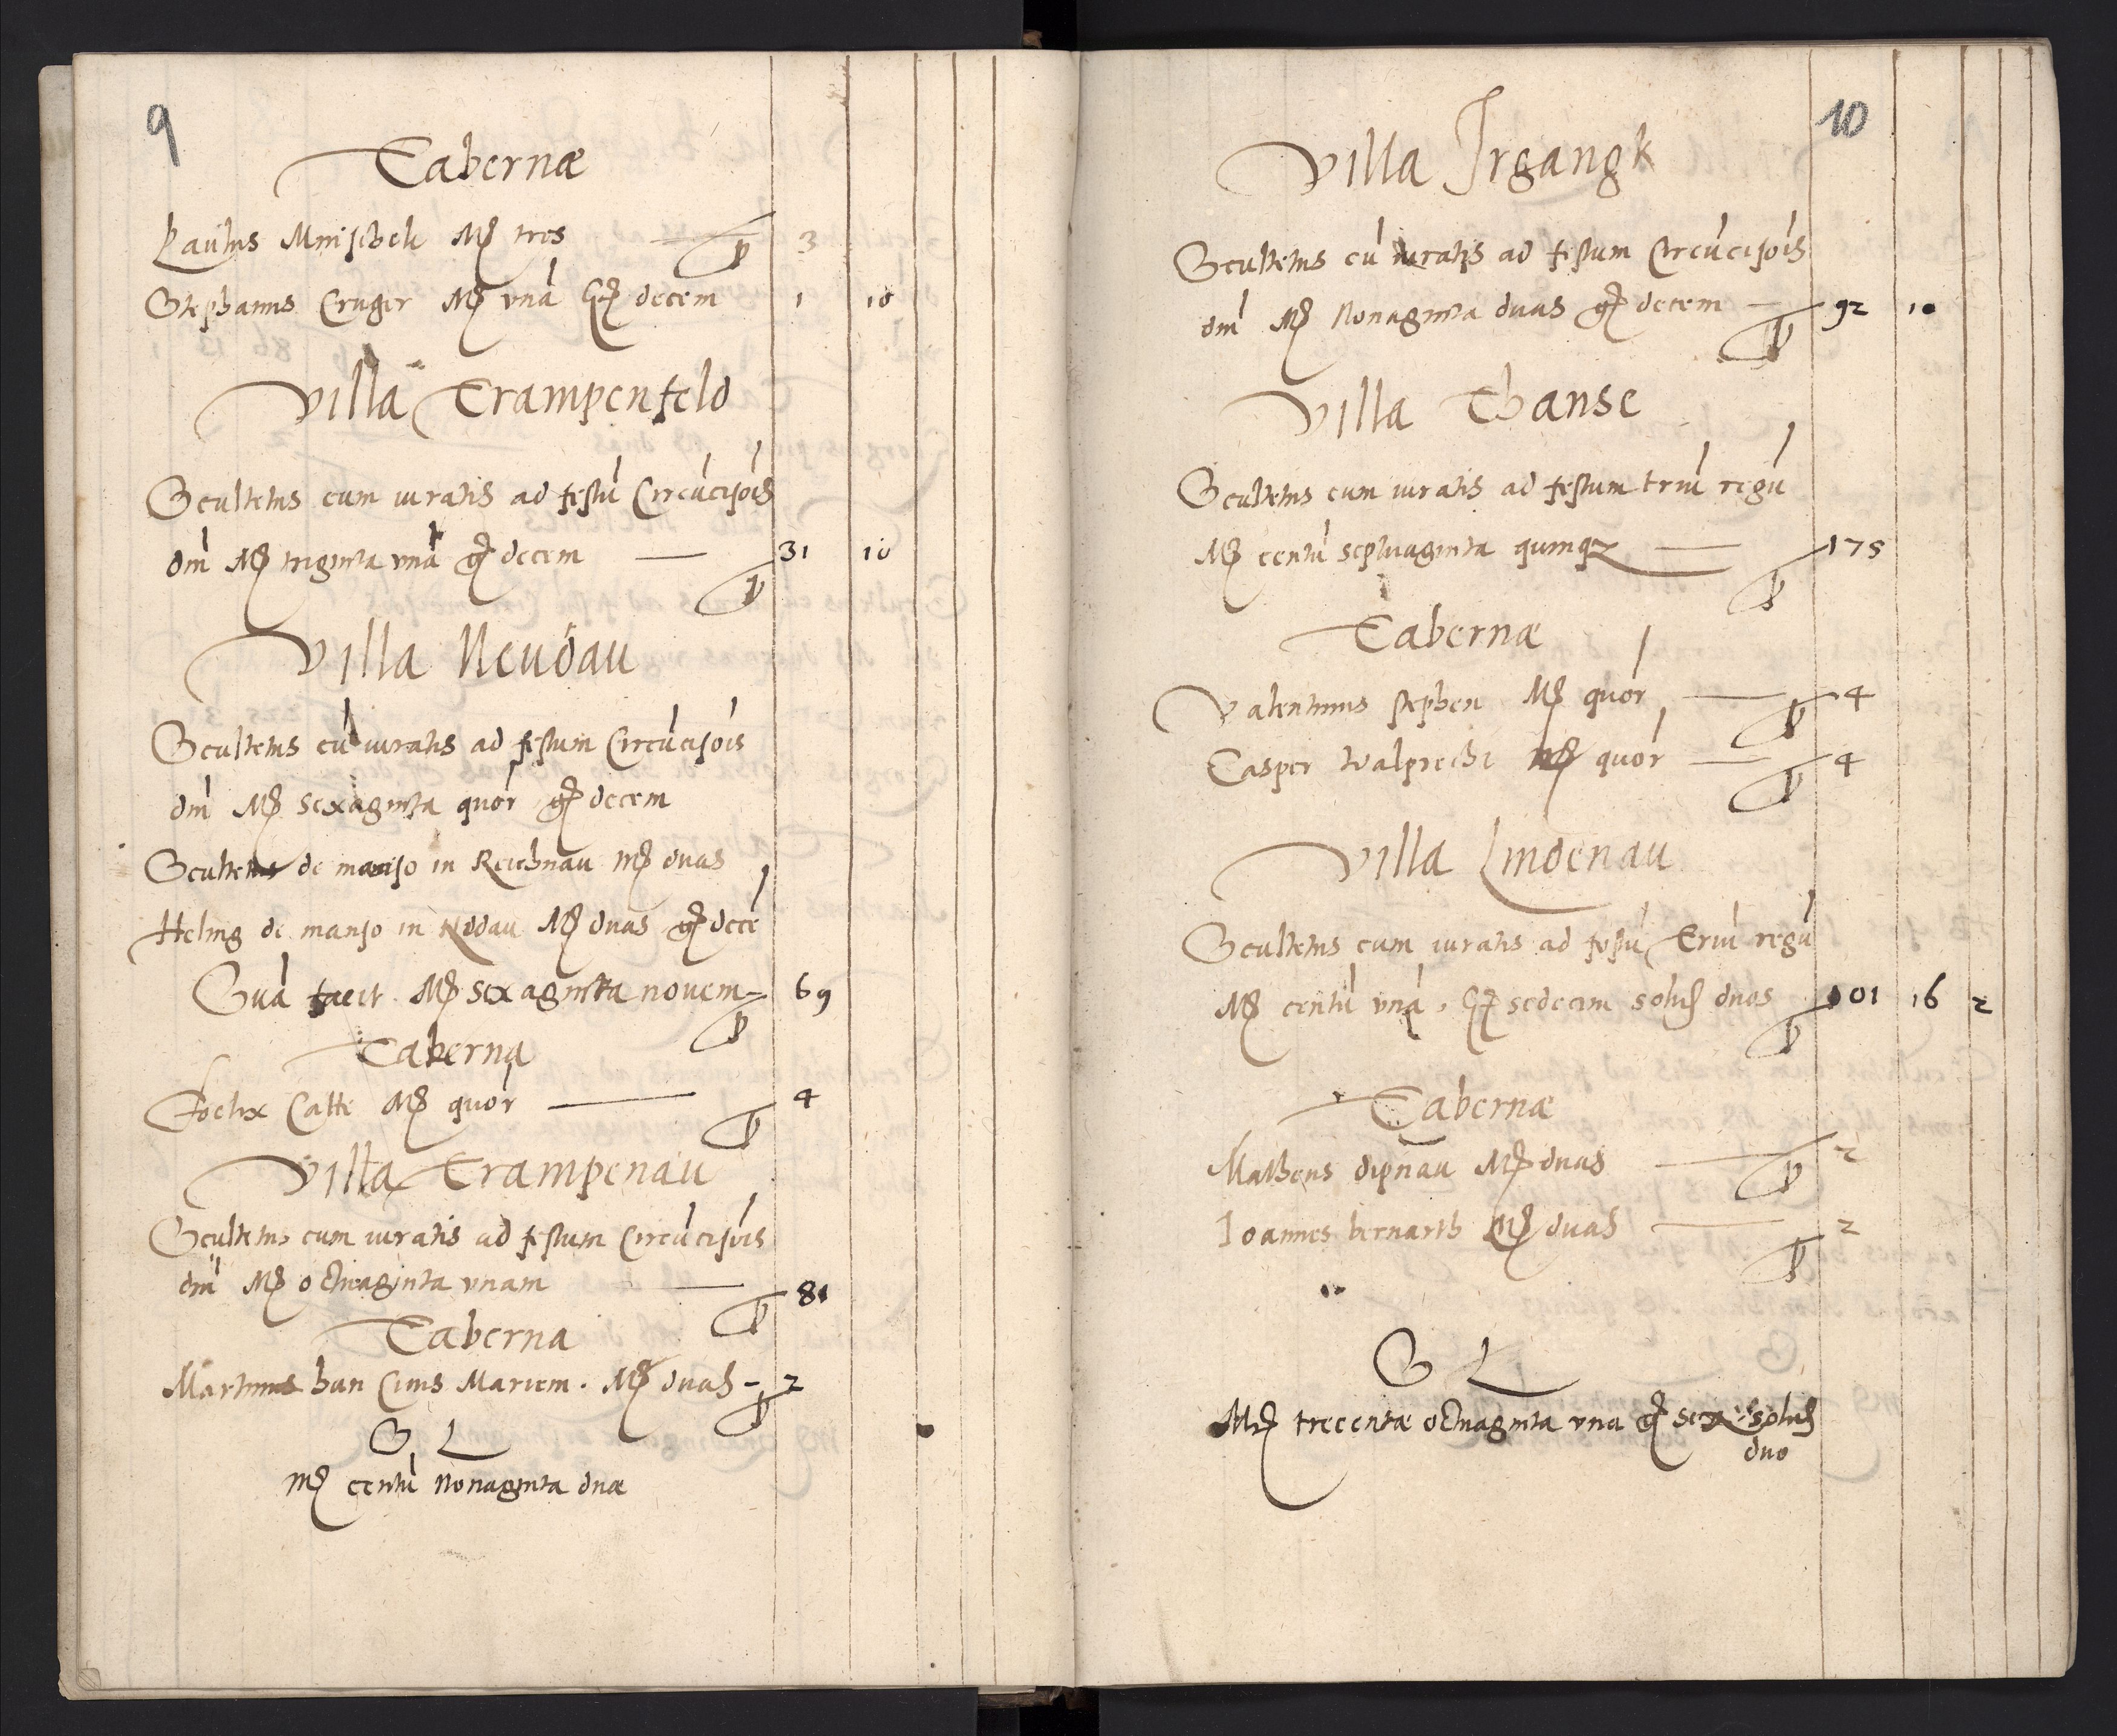 9
Tabernæ
Paulus Mnischek Mr tres 3
Stephanus Cruger Mr vnā Gr decem 1 10
Villa Trampenfeld
Scultetus cum iuratis ad festū Circūcisōis
dnī Mr triginta vnā gr decem 31 10
Villa Neudau
Scultetus cū iuratis ad festum Circūcisōis
dnī Mr sexaginta quōr gr decem
Scultetus de manso in Reichnau Mr duas
Helmg de manso in Nodau Mr duas gr decē
Suā facit Mr sexaginta nouem 69
Taberna
Foelix Catte Mr quōr 4
Villa Trampenau
Scultetus cum iuratis ad festum Circūcisōis
dnī Mr octuaginta vnam 81
Taberna
Martinus ban Mariem. Mr duas 2
S L
Mr centū Nonaginta duæ
10
Villa Irgangk
Scultetus cū iuratis ad festum Circūcisōis
dnī Mr Nonaginta duas gr decem 92 10
Villa Thanse
Scultetus cum iuratis ad festum triū regū
Mr centū septuaginta quinq3 175
Tabernæ
Valentinus stephen Mr quōr 4
Casper walprecht Mr quōr 4
Villa Lindenau
Scultetus cum iuratis ad festū Triū regū
Mr centū vnā. Gr sedecim solid duos 101 16 2
Tabernæ
Matheus dipnau Mr duas 2
Ioannes bernarth Mr duas 2
S L
Mr trecentæ octuaginta vna gr sex solid
duo